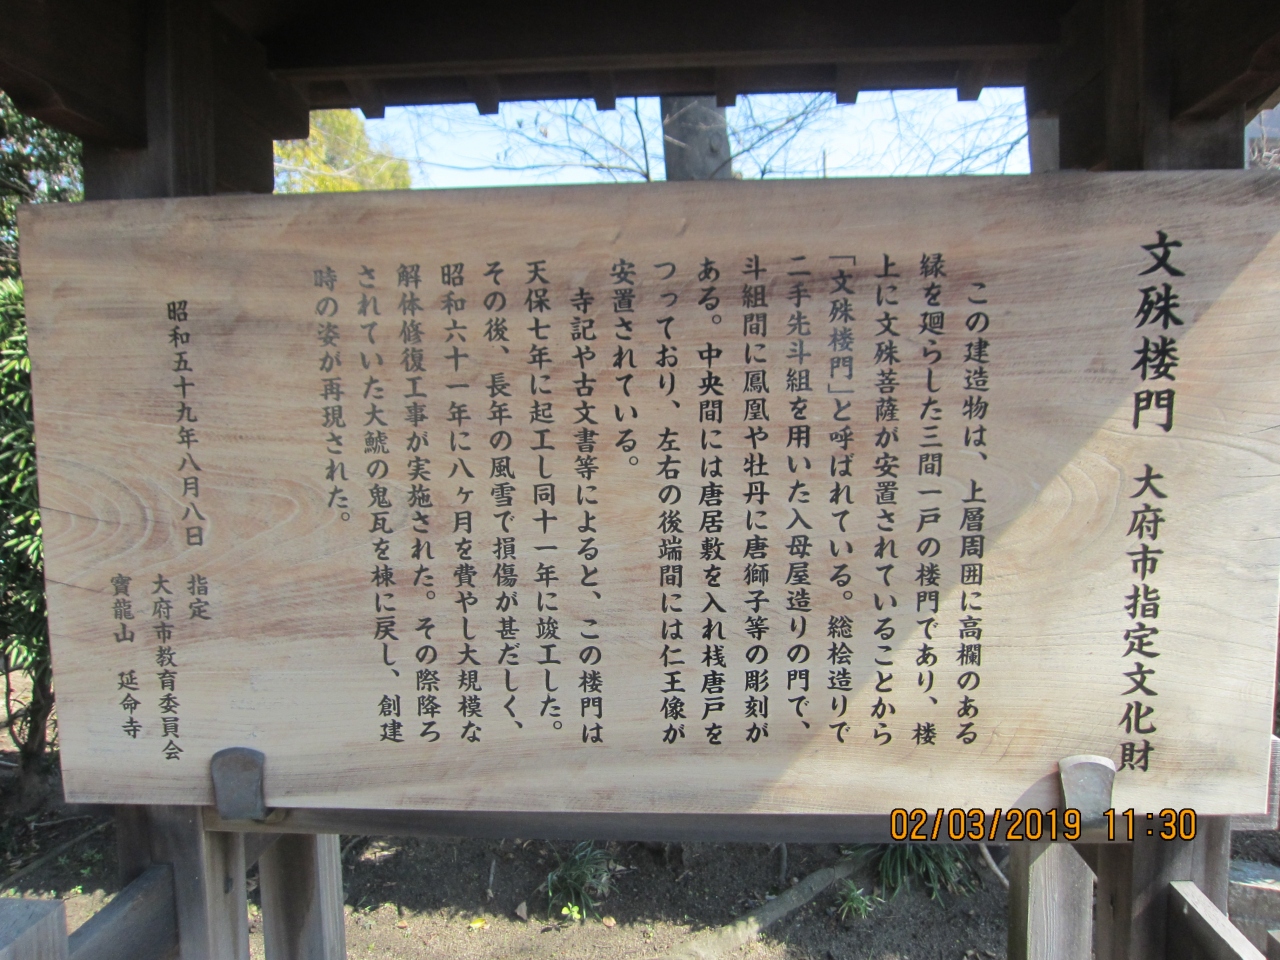 文殊楼門 大府市指定文化財
この建造物は、上層周囲に高欄のある
縁を廻らした三間一戸の楼門であり、楼
上に文殊菩薩が安置されていることから
「文殊楼門」と呼ばれている。総桧造りで
二手先斗組を用いた入母屋造りの門で、
斗組間に鳳凰や牡丹に唐獅子等の彫刻が
ある。中央間には唐居敷を入れ桟唐戸を
つっており、左右の後端間には仁王像が
安置されている。
寺記や古文書等によると、この楼門は
天保七年に起工し同十一年に竣工した。
その後、長年の風雪で損傷が甚だしく、
昭和六十一年に八ヶ月を費やし大規模な
解体修復工事が実施された。その際降ろ
されていた大鯱の鬼瓦を棟に戻し、創建
時の姿が再現された。
昭和五十九年八月八日 指定
大府市教育委員会
寶龍山 延命寺
02/03/2019 11:30